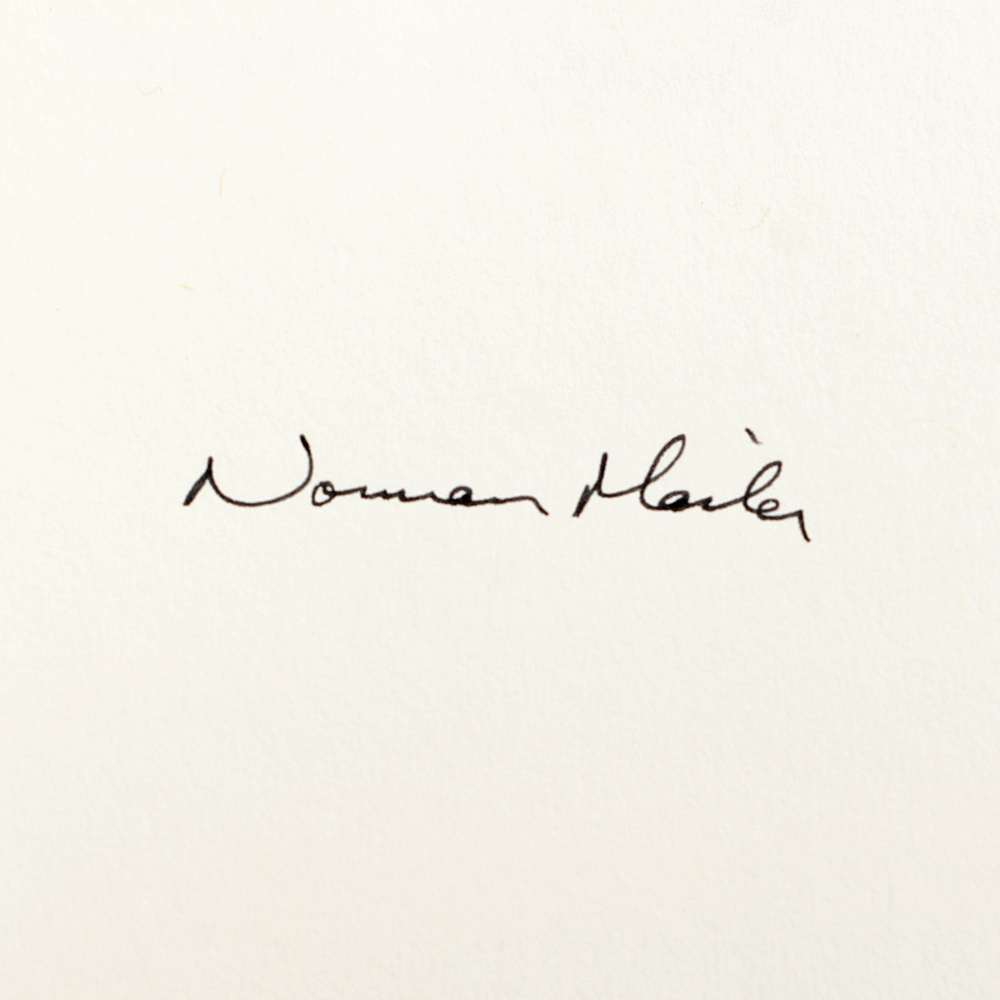 Norman Mailer